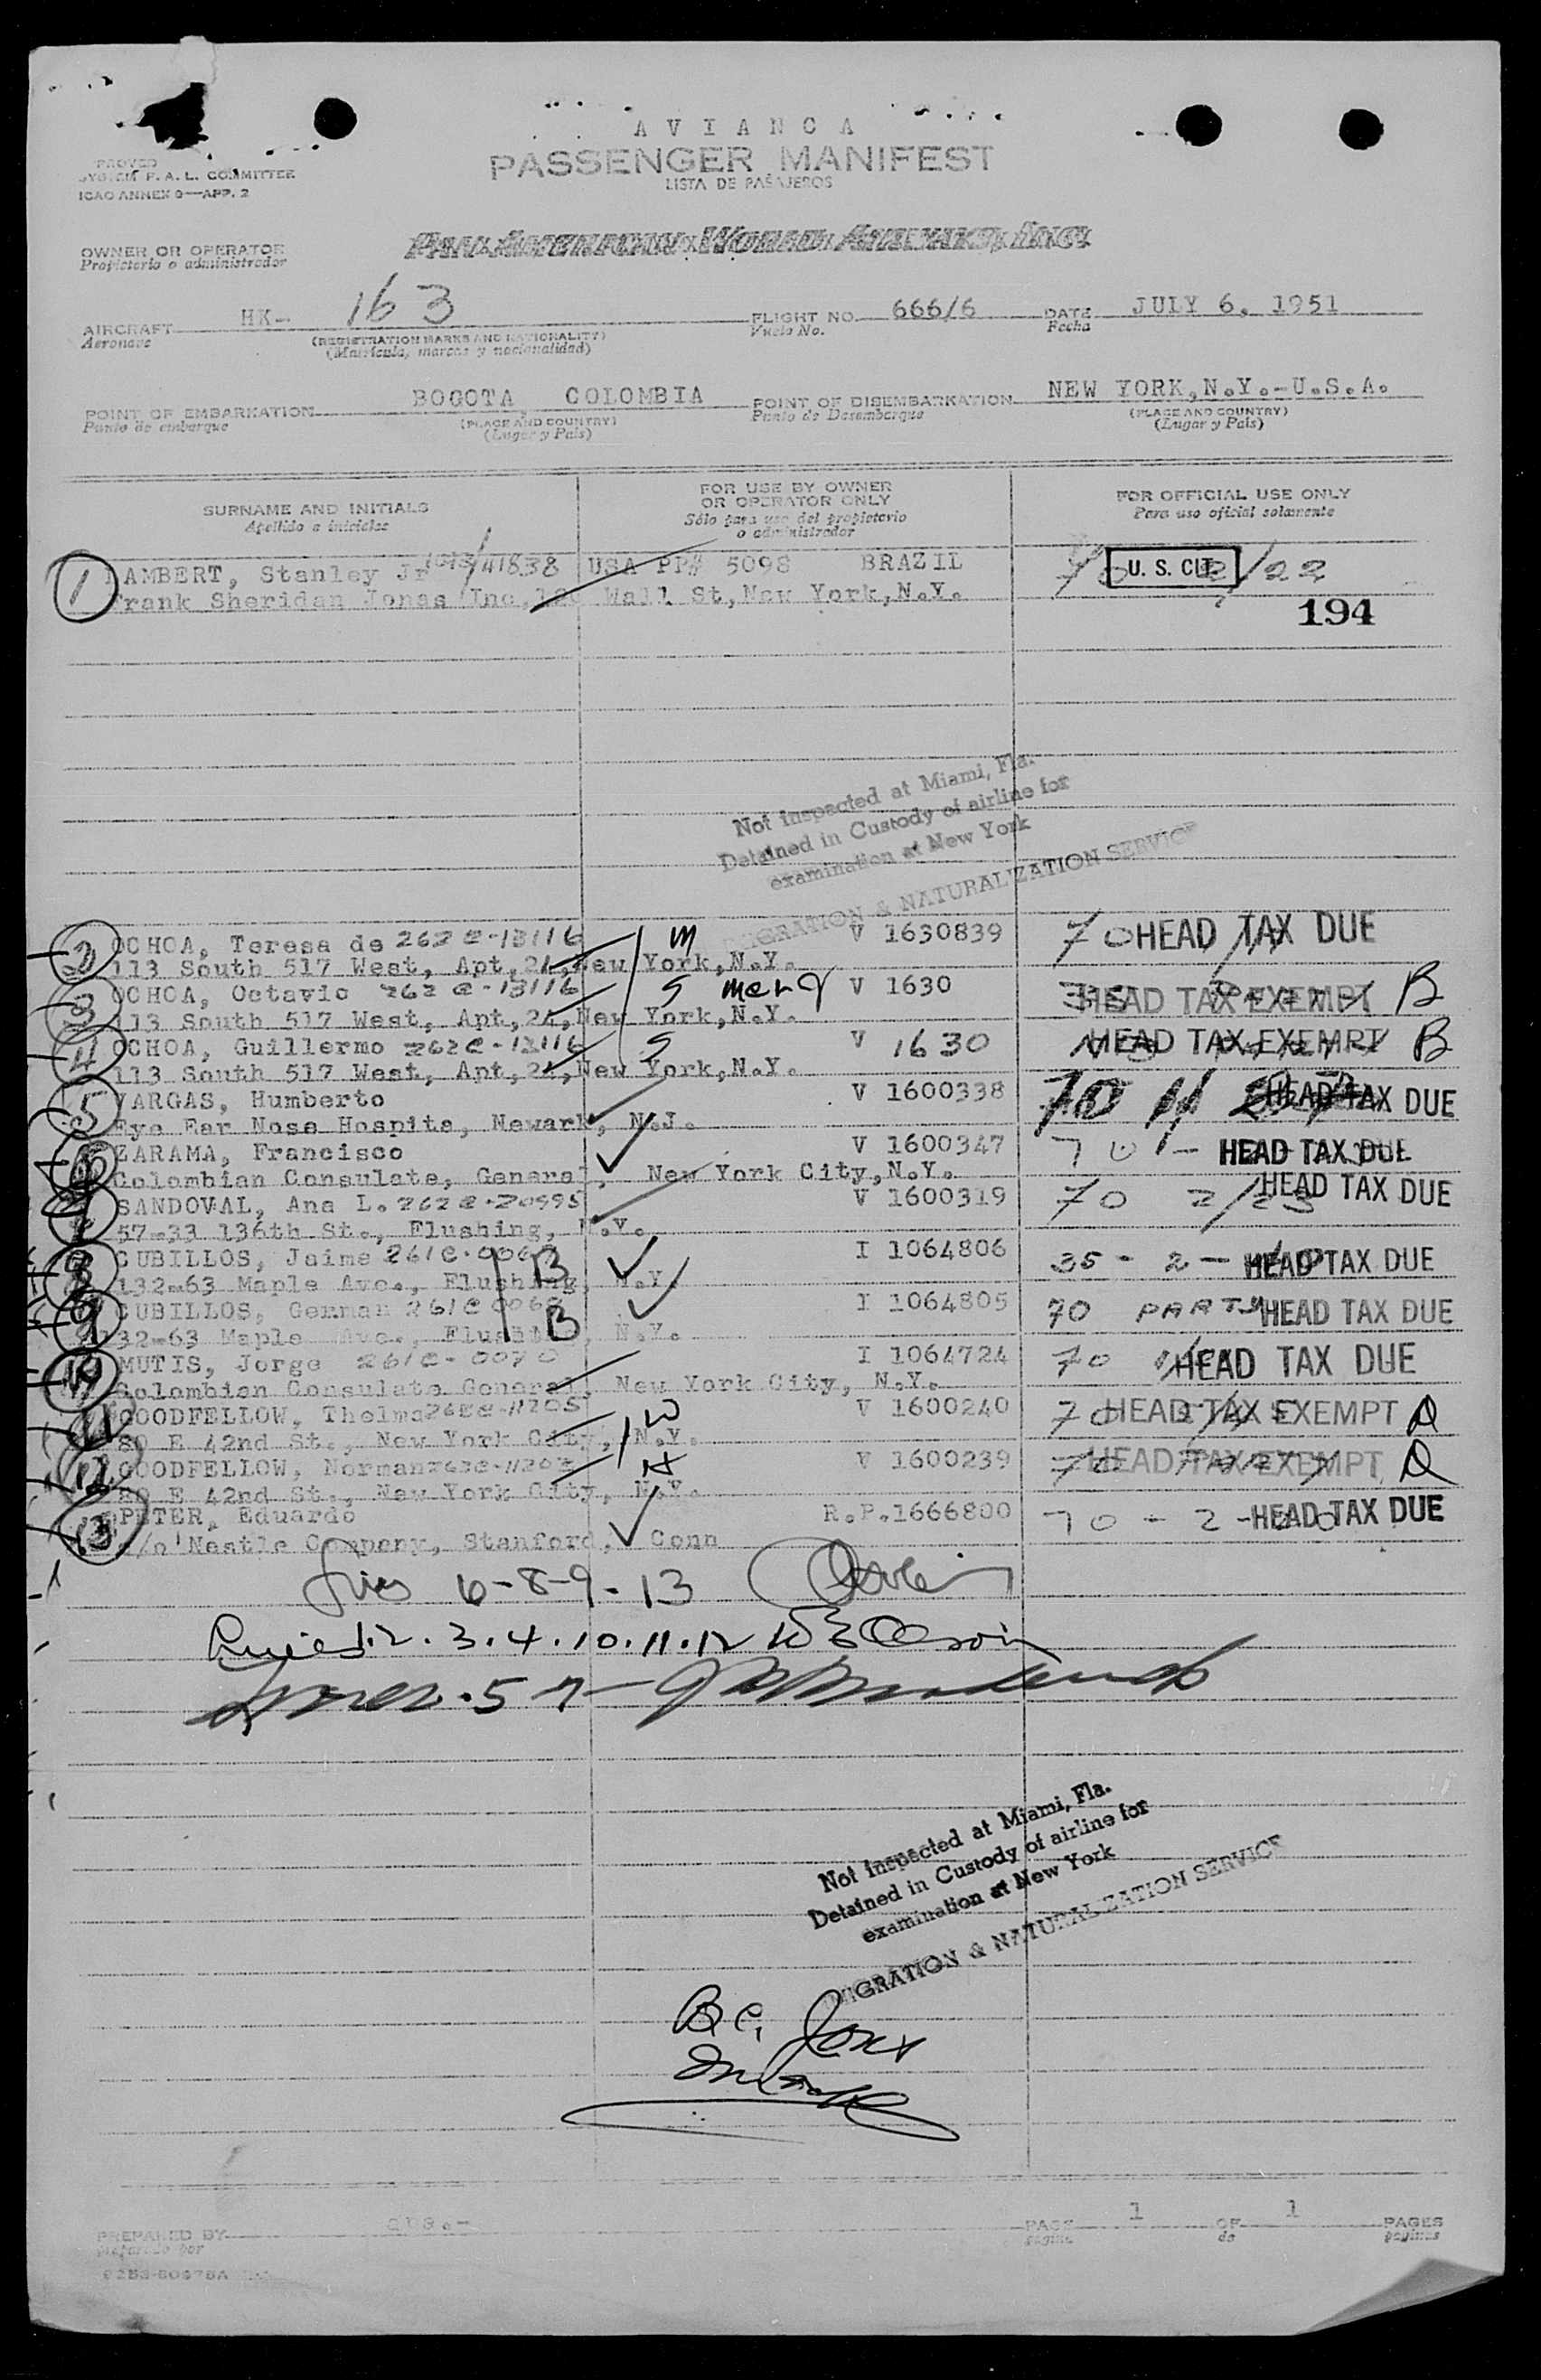 AVIANCA
PASSENGER MANIFEST
LISTA DE PASAJEROS
F. A. L. COMMITTEE
ICAO ANNEX 9—APP. 2
OWNER OR OPERATOR
Propietario o administrador
PAN AMERICAN WORLD AIRWAYS, INC.
AIRCRAFT HK- 163 FLIGHT NO. 666/6 DATE JULY 6, 1951
Aeronave (REGISTRATION MARKS AND NATIONALITY) Vuelo No. Fecha
(Matrícula, marcas y nacionalidad)
POINT OF EMBARKATION BOGOTA COLOMBIA POINT OF DISEMBARKATION NEW YORK,N.Y.-U.S.A.
Punto de embarque (PLACE AND COUNTRY) Punto de Desembarque (PLACE AND COUNTRY)
(Lugar y País) (Lugar y País)
SURNAME AND INITIALS FOR USE BY OWNER OR OPERATOR ONLY FOR OFFICIAL USE ONLY
Apellido e iniciales Sólo para uso del propietario o administrador Para uso oficial solamente
1 LAMBERT, Stanley Jr USA PP# 5098 BRAZIL U. S. CIT.
Frank Sheridan Jonas Inc, Wall St, New York, N.Y. 194
Not inspected at Miami, Fla.
Detained in Custody of airline for
examination at New York
IMMIGRATION & NATURALIZATION SERVICE
2 OCHOA, Teresa de 262 e-13116 m V 1630839 70 HEAD TAX DUE
113 South 517 West, Apt, 24, New York, N.Y.
3 OCHOA, Octavio 262 e-13116 S V 1630 HEAD TAX EXEMPT B
113 South 517 West, Apt, 24, New York, N.Y.
4 OCHOA, Guillermo 262e-13116 S V 1630 HEAD TAX EXEMPT B
113 South 517 West, Apt, 24, New York, N.Y.
5 VARGAS, Humberto V 1600338 70 HEAD TAX DUE
Eye Ear Nose Hospita, Newark, N.J.
6 ZARAMA, Francisco V 1600347 70 HEAD TAX DUE
Colombian Consulate, General, New York City, N.Y.
7 SANDOVAL, Ana L. 262e-20995 V 1600319 70 2/23 HEAD TAX DUE
57-33 136th St., Flushing, N.Y.
8 CUBILLOS, Jaime B I 1064806 35 - 2 - HEAD TAX DUE
132-63 Maple Ave., Flushing, N.Y.
9 CUBILLOS, German B I 1064805 70 PARTY HEAD TAX DUE
132-63 Maple Ave., Flushing, N.Y.
10 MUTIS, Jorge 261e-0070 I 1064724 70 HEAD TAX DUE
Colombian Consulate General, New York City, N.Y.
11 GOODFELLOW, Thelma W V 1600240 70 HEAD TAX EXEMPT D
80 E 42nd St., New York City, N.Y.
12 GOODFELLOW, Norman H V 1600239 70 HEAD TAX EXEMPT D
80 E 42nd St., New York City, N.Y.
13 PETER, Eduardo R.P.1666800 70 - 2 - HEAD TAX DUE
c/o Nestle Company, Stanford, Conn
6-8-9-13
1.2.3.4.10.11.12
5 7
Not inspected at Miami, Fla.
Detained in Custody of airline for
examination at New York
IMMIGRATION & NATURALIZATION SERVICE
PREPARED BY PAGE 1 OF 1 PAGES
preparado por página de páginas